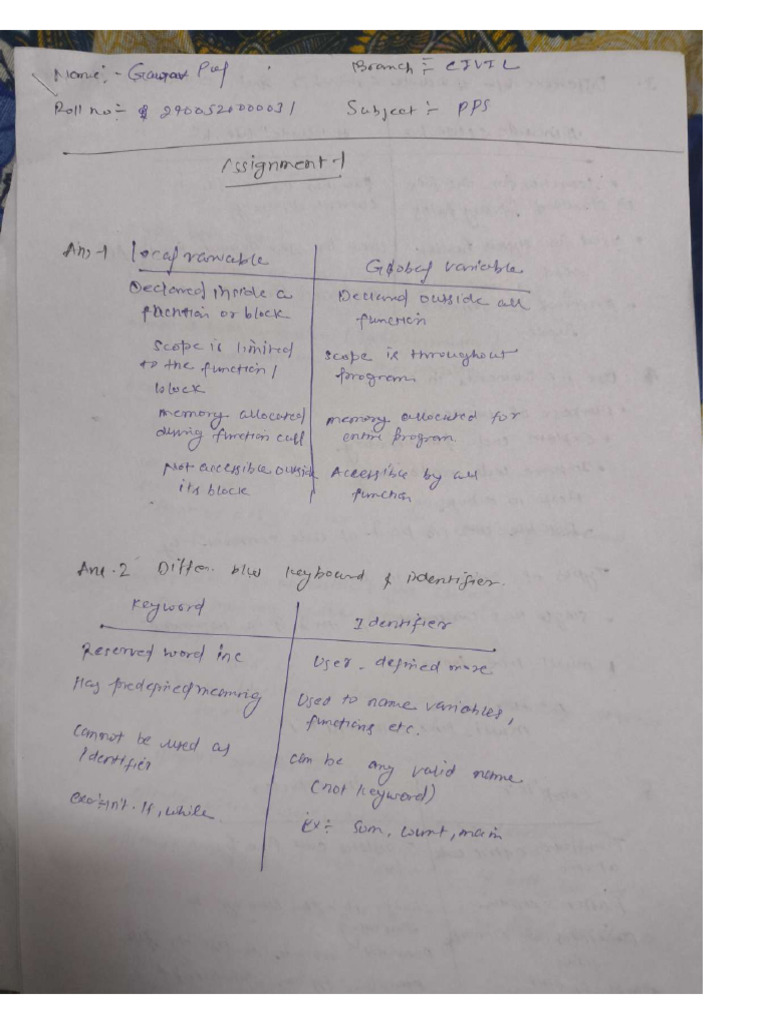 Name:- Gaurav
Branch:- CIVIL
Roll no:-
Subject:- PPS
Assignment-1
Ans-1 local variable
Global variable
Declared inside a
function or block
Declared outside all
function
Scope is limited
to the function/
block
Scope is throughout
program
memory allocated
during function call
memory allocated for
entire program.
Not accessible outside
its block
Accessible by all
function
Ans.2 Differ. b/w keyboard & identifier.
Keyword
Identifier
Reserved word in c
User-defined name
Has predefined meaning
Used to name variables,
functions etc.
Cannot be used as
Identifier
can be any valid name
(not keyword)
int, if, while
Ex:- Sum, count, main